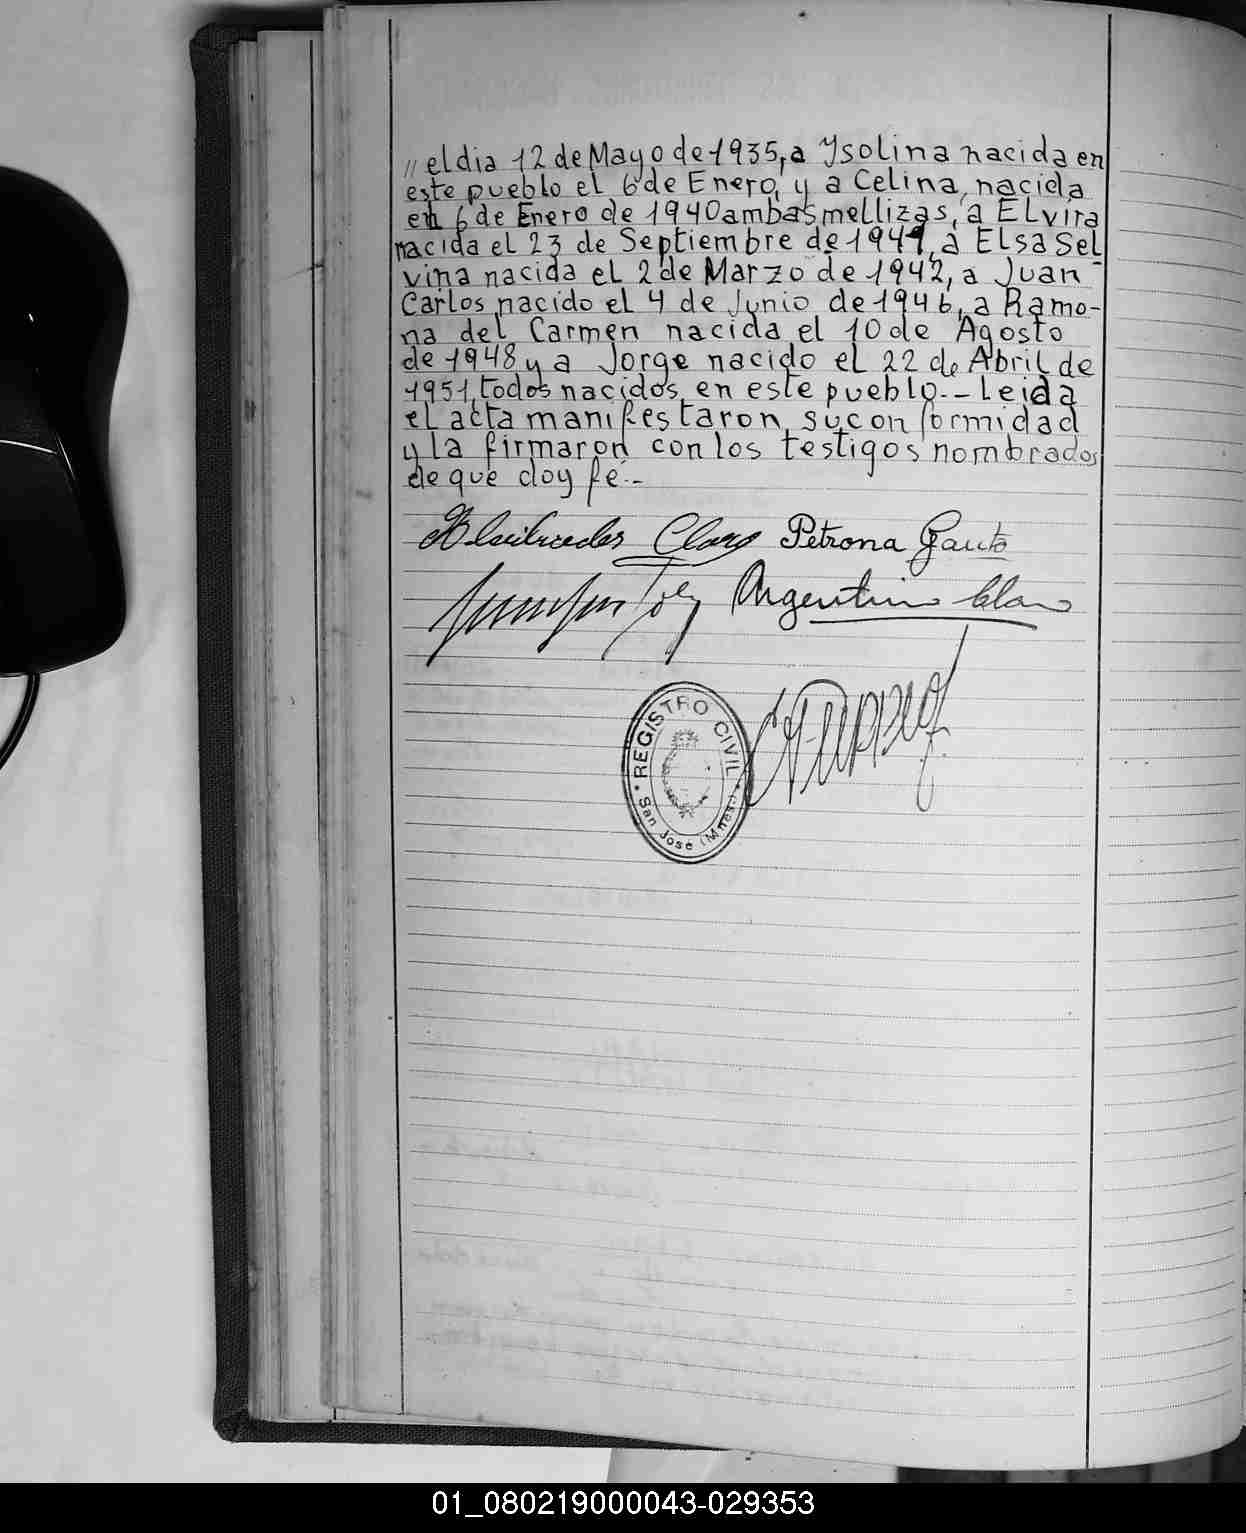 " el dia 12 de Mayo de 1935, a Ysolina nacida en
este pueblo el 6 de Enero, y a Celina, nacida
en 6 de Enero de 1940 ambas mellizas, a Elvira
nacida el 23 de Septiembre de 1941, a Elsa Sel
vina nacida el 2 de Marzo de 1942, a Juan
Carlos nacido el 4 de Junio de 1946, a Ramo-
na del Carmen nacida el 10 de Agosto
de 1948 y a Jorge nacido el 22 de Abril de
1951, todos nacidos en este pueblo.-- Leida
el acta manifestaron su conformidad
y la firmaron con los testigos nombrados
de que doy fé.-
Petrona Gauto
Argentino
REGISTRO CIVIL
San José (Mnes.)
01_080219000043-029353